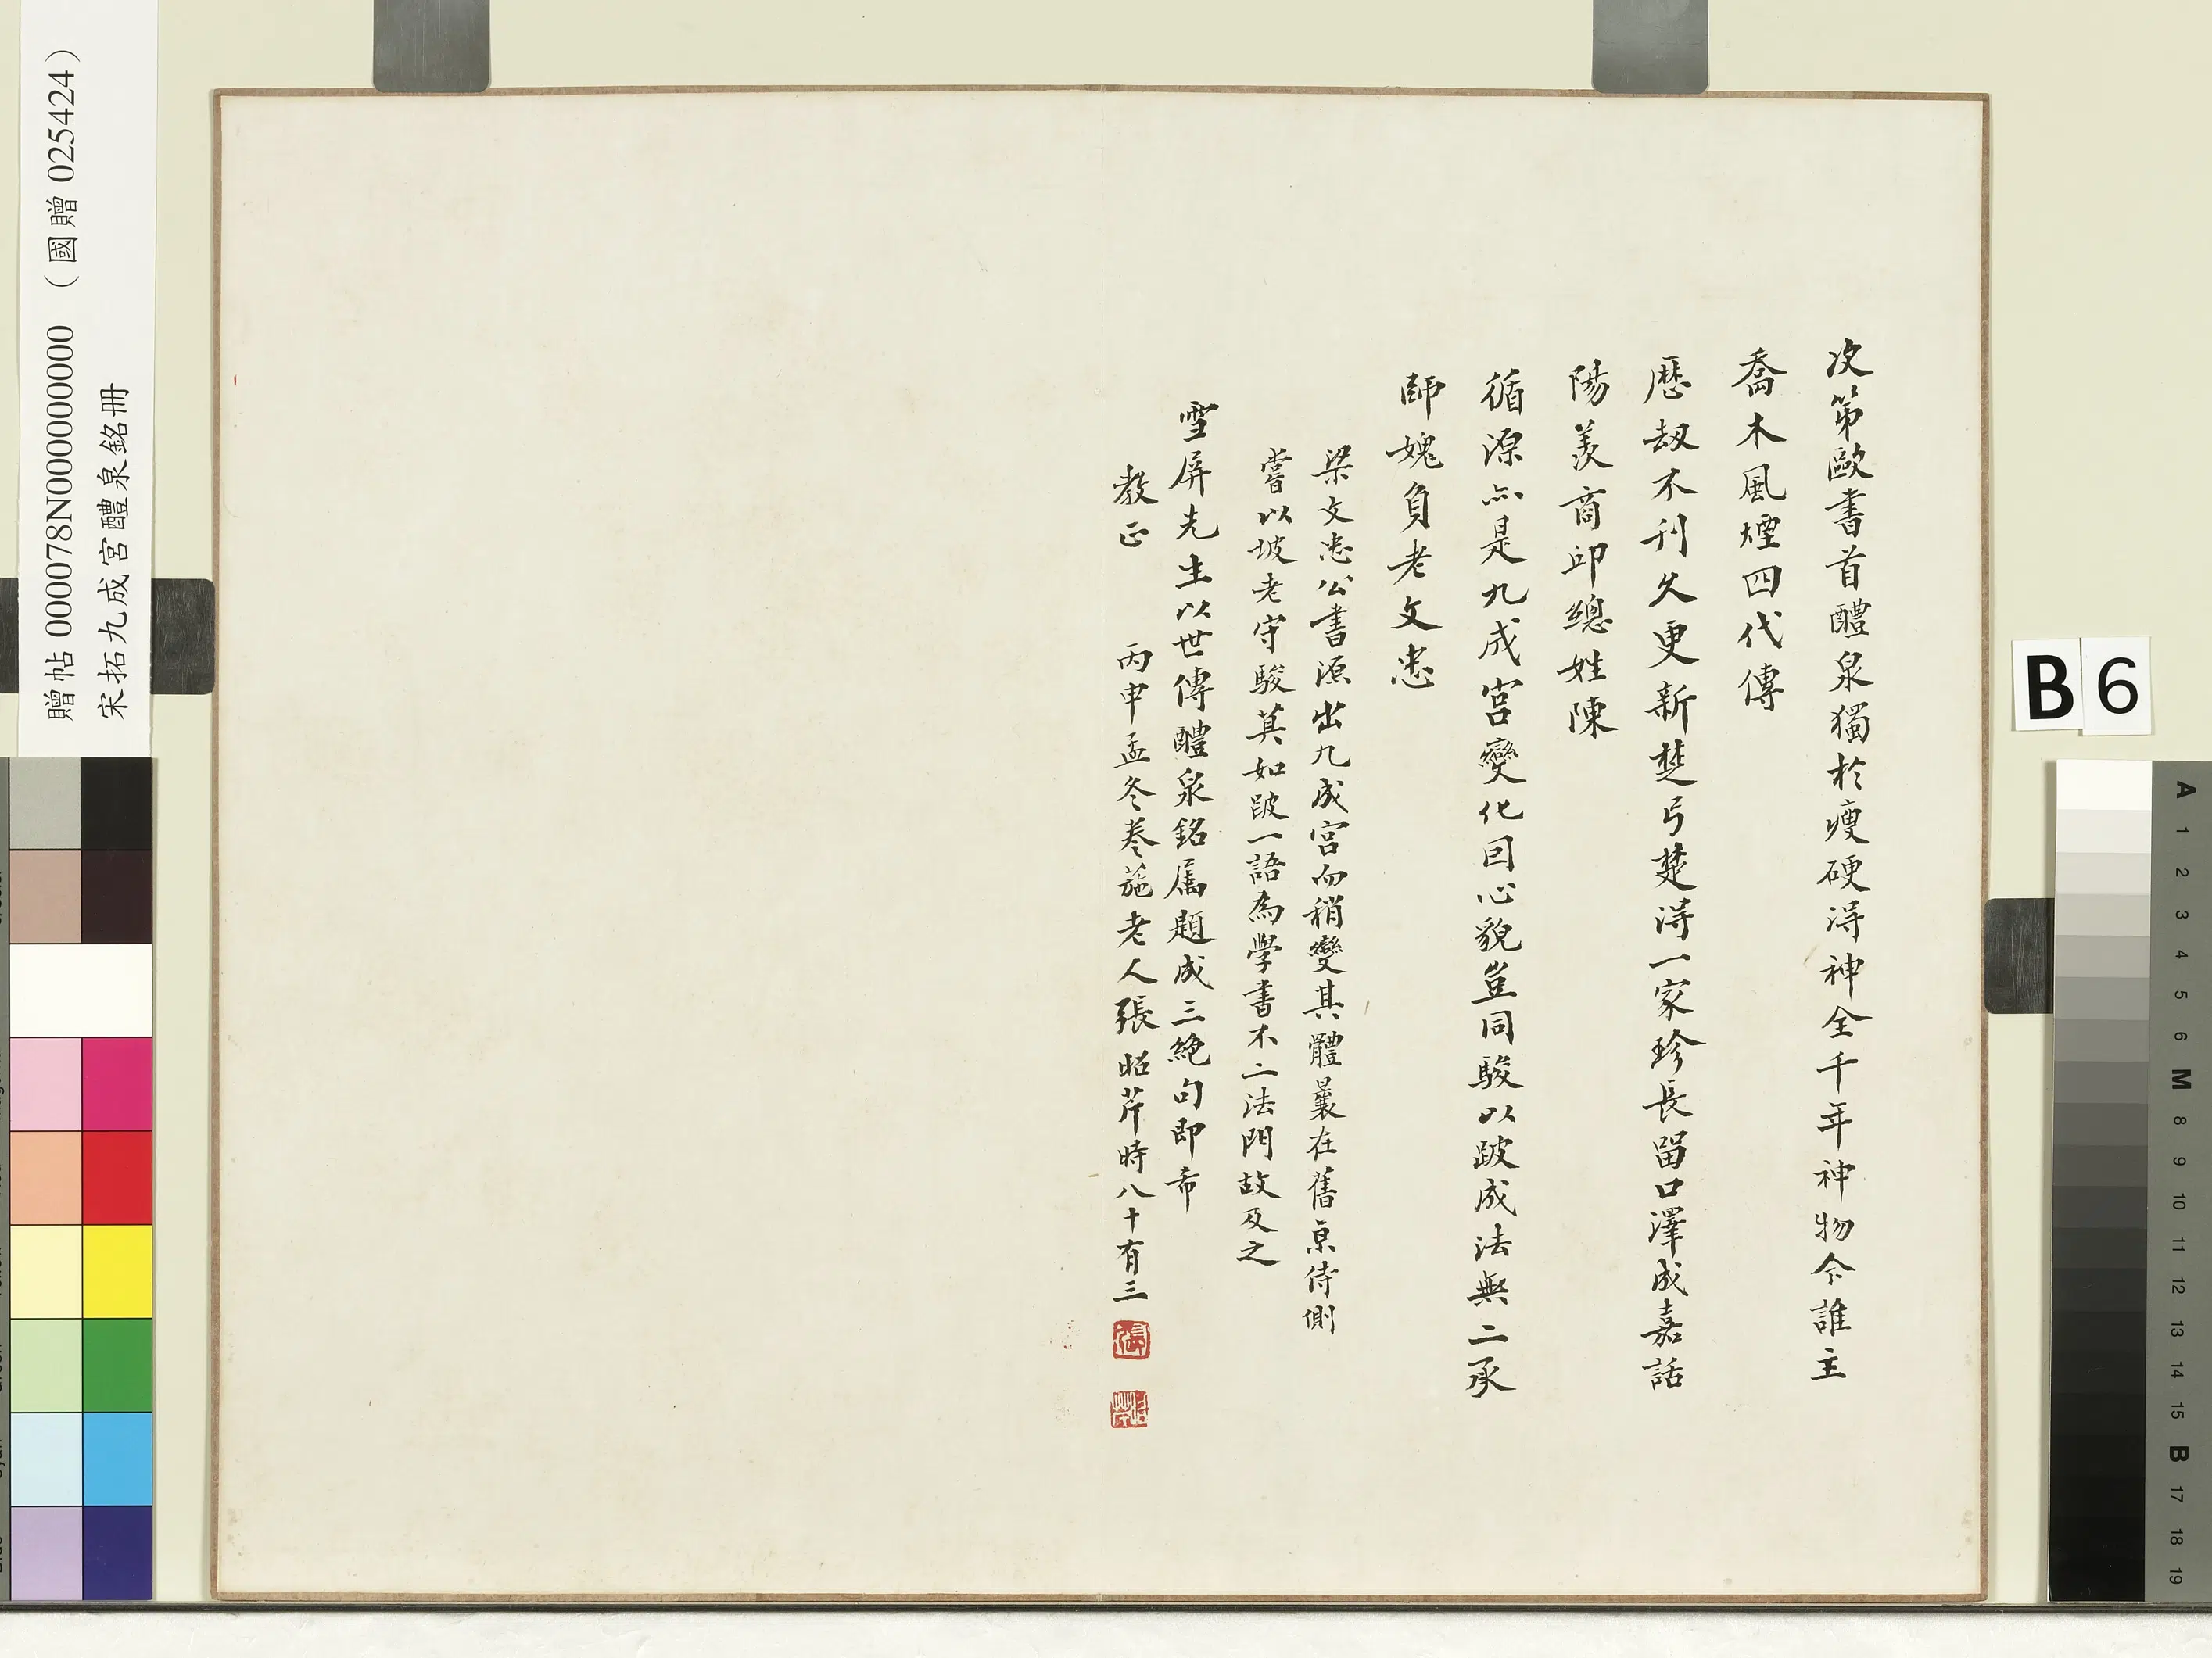 次第歐書首醴泉獨於瘦硬得神全千年神物今誰主
喬木風煙四代傳
歷劫不刊久更新楚弓楚得一家珍長留口澤成嘉話
陽羨商邱總姓陳
循源亦是九成宮變化因心貌豈同駿以跛成法無二承
師媿負老文忠
梁文忠公書源出九成宮而稍變其體曩在舊京侍側
嘗以坡老守駿莫如跛一語為學書不二法門故及之
雪屏先生以世傳醴泉銘屬題成三絕句即希
教正 丙申孟冬卷葹老人張昭芹時八十有三
贈帖 000078N000000000 （國贈 025424）
宋拓九成宮醴泉銘冊
B 6
A 1 2 3 4 5 6 M 8 9 10 11 12 13 14 15 B 17 18 19